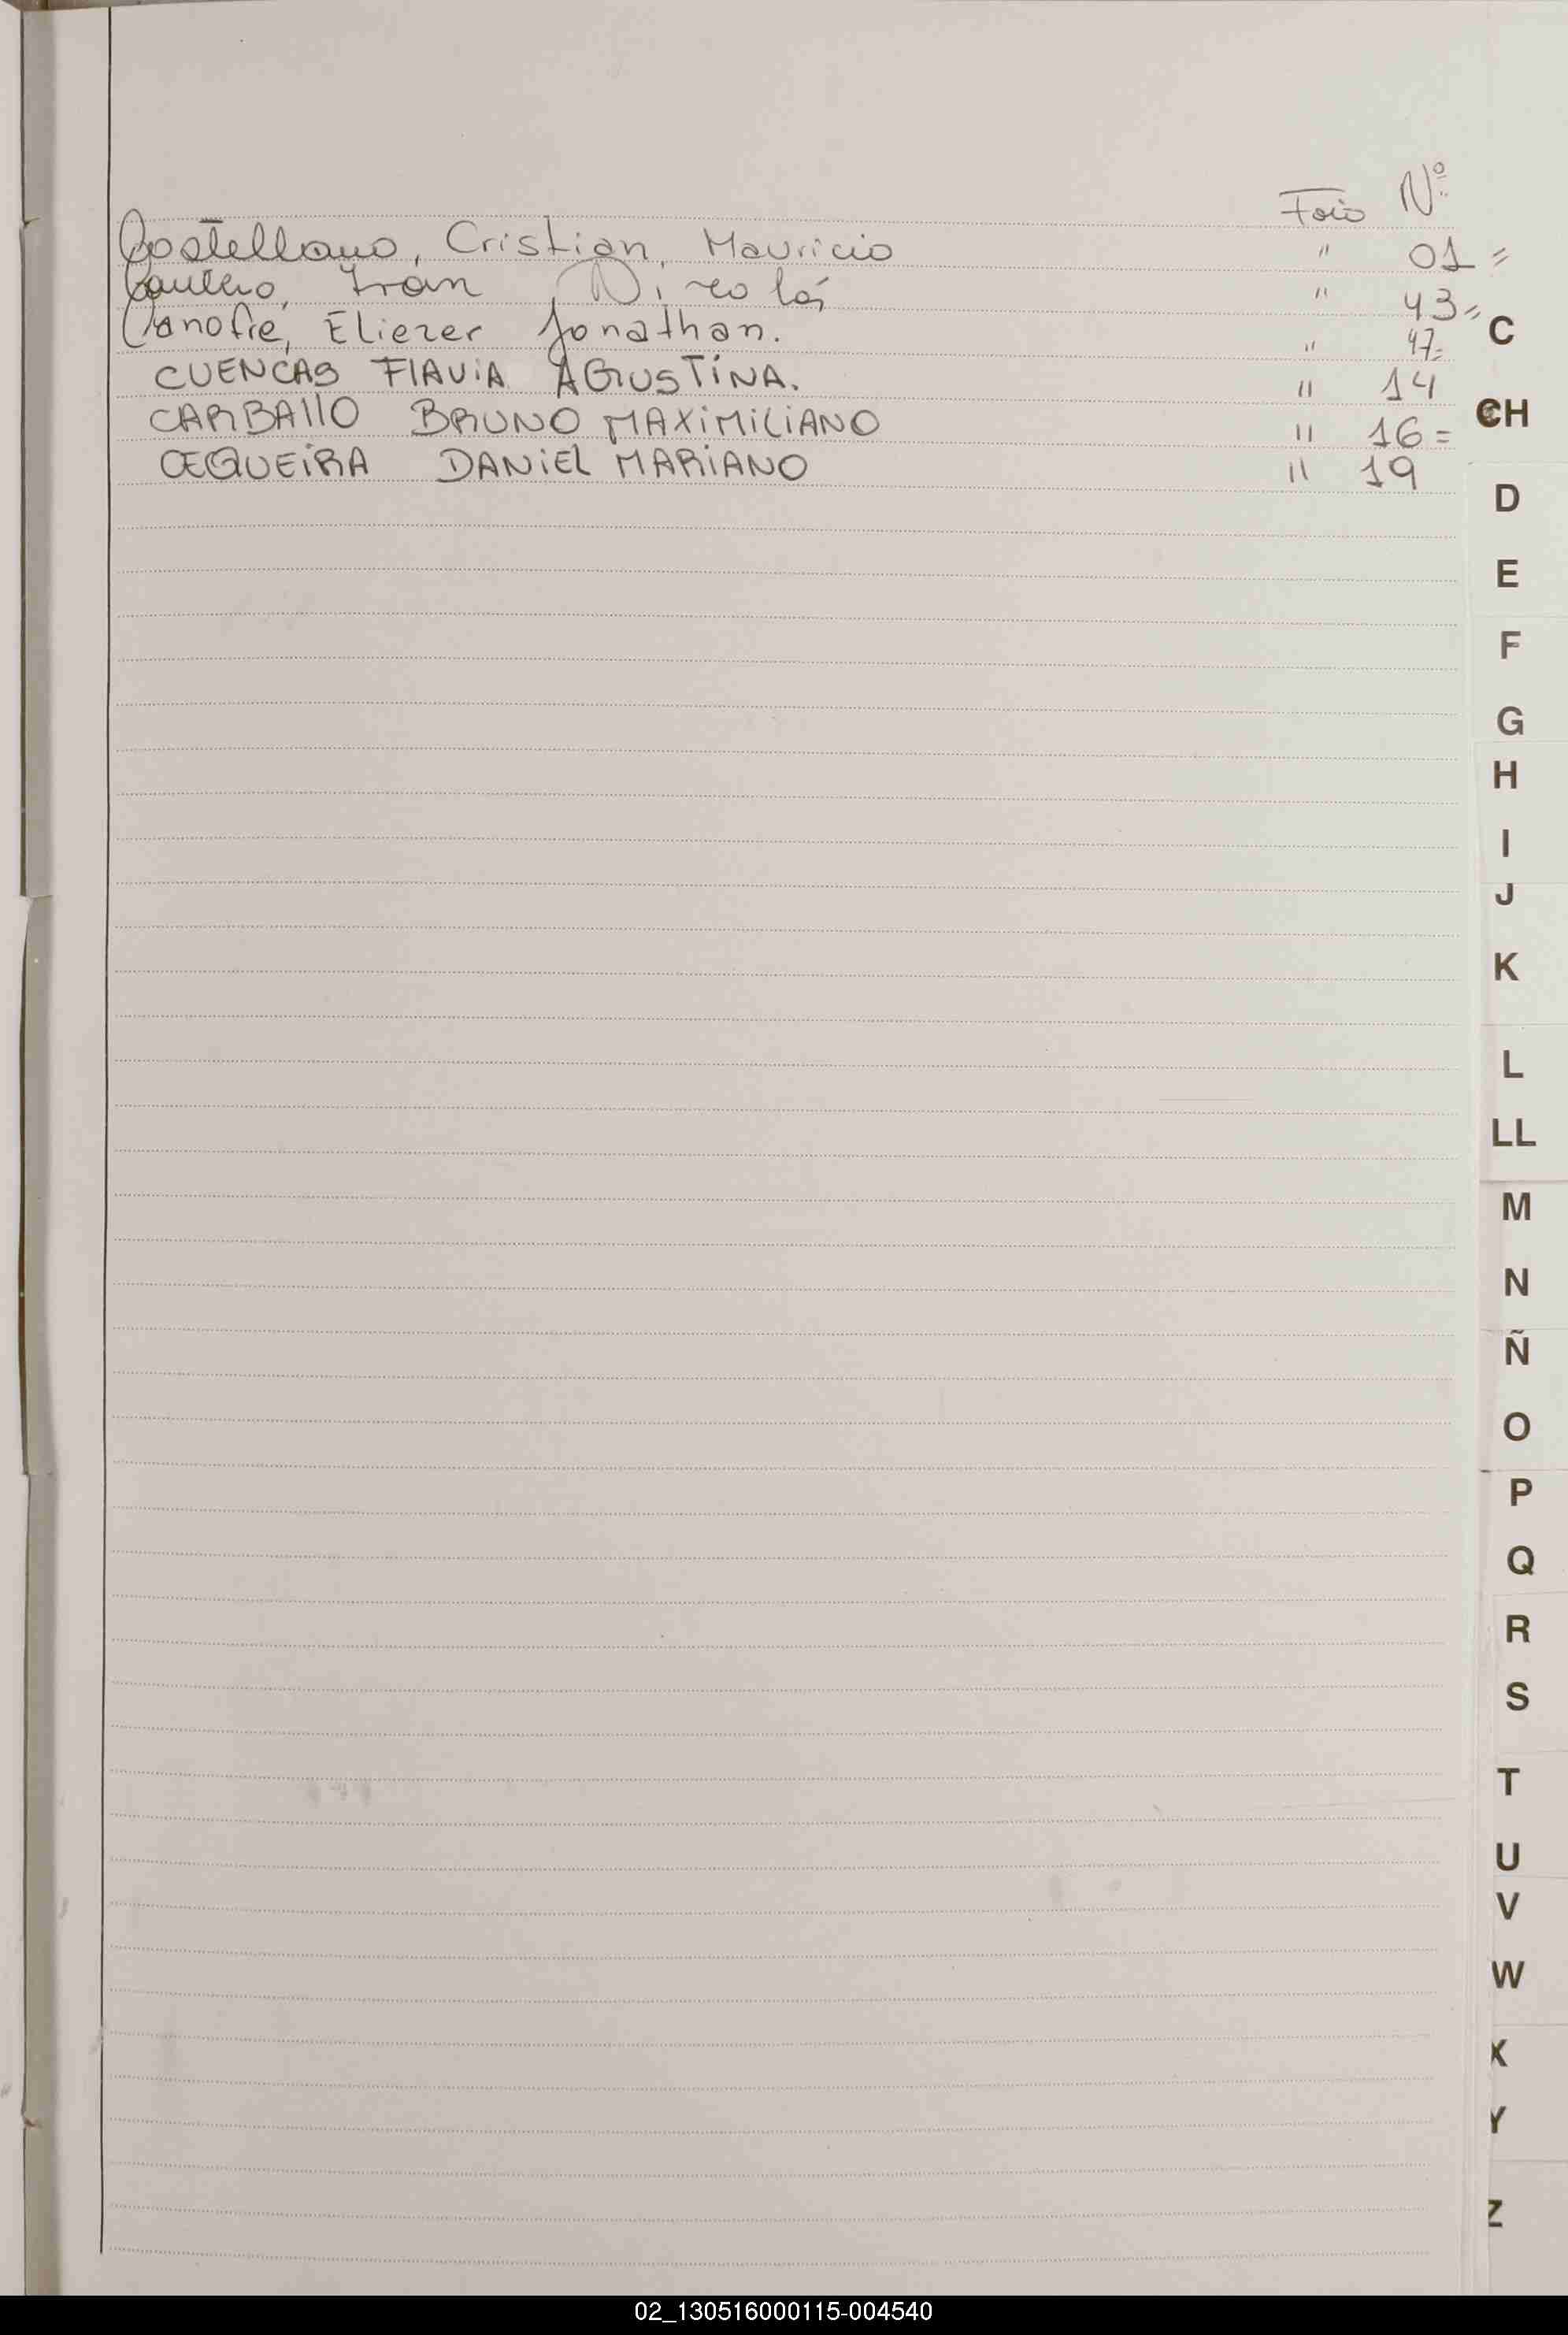 Folio Nº
Castellano, Cristian, Mauricio " 01=
Cantero, Iran, Nicolás " 43=
Canofre, Eliezer Jonathan. " 47=
CUENCAS FLAVIA AGUSTINA. " 14
CARBALLO BRUNO MAXIMILIANO " 16=
CEQUEIRA DANIEL MARIANO " 19
C
CH
D
E
F
G
H
I
J
K
L
LL
M
N
Ñ
O
P
Q
R
S
T
U
V
W
X
Y
Z
02_130516000115-004540